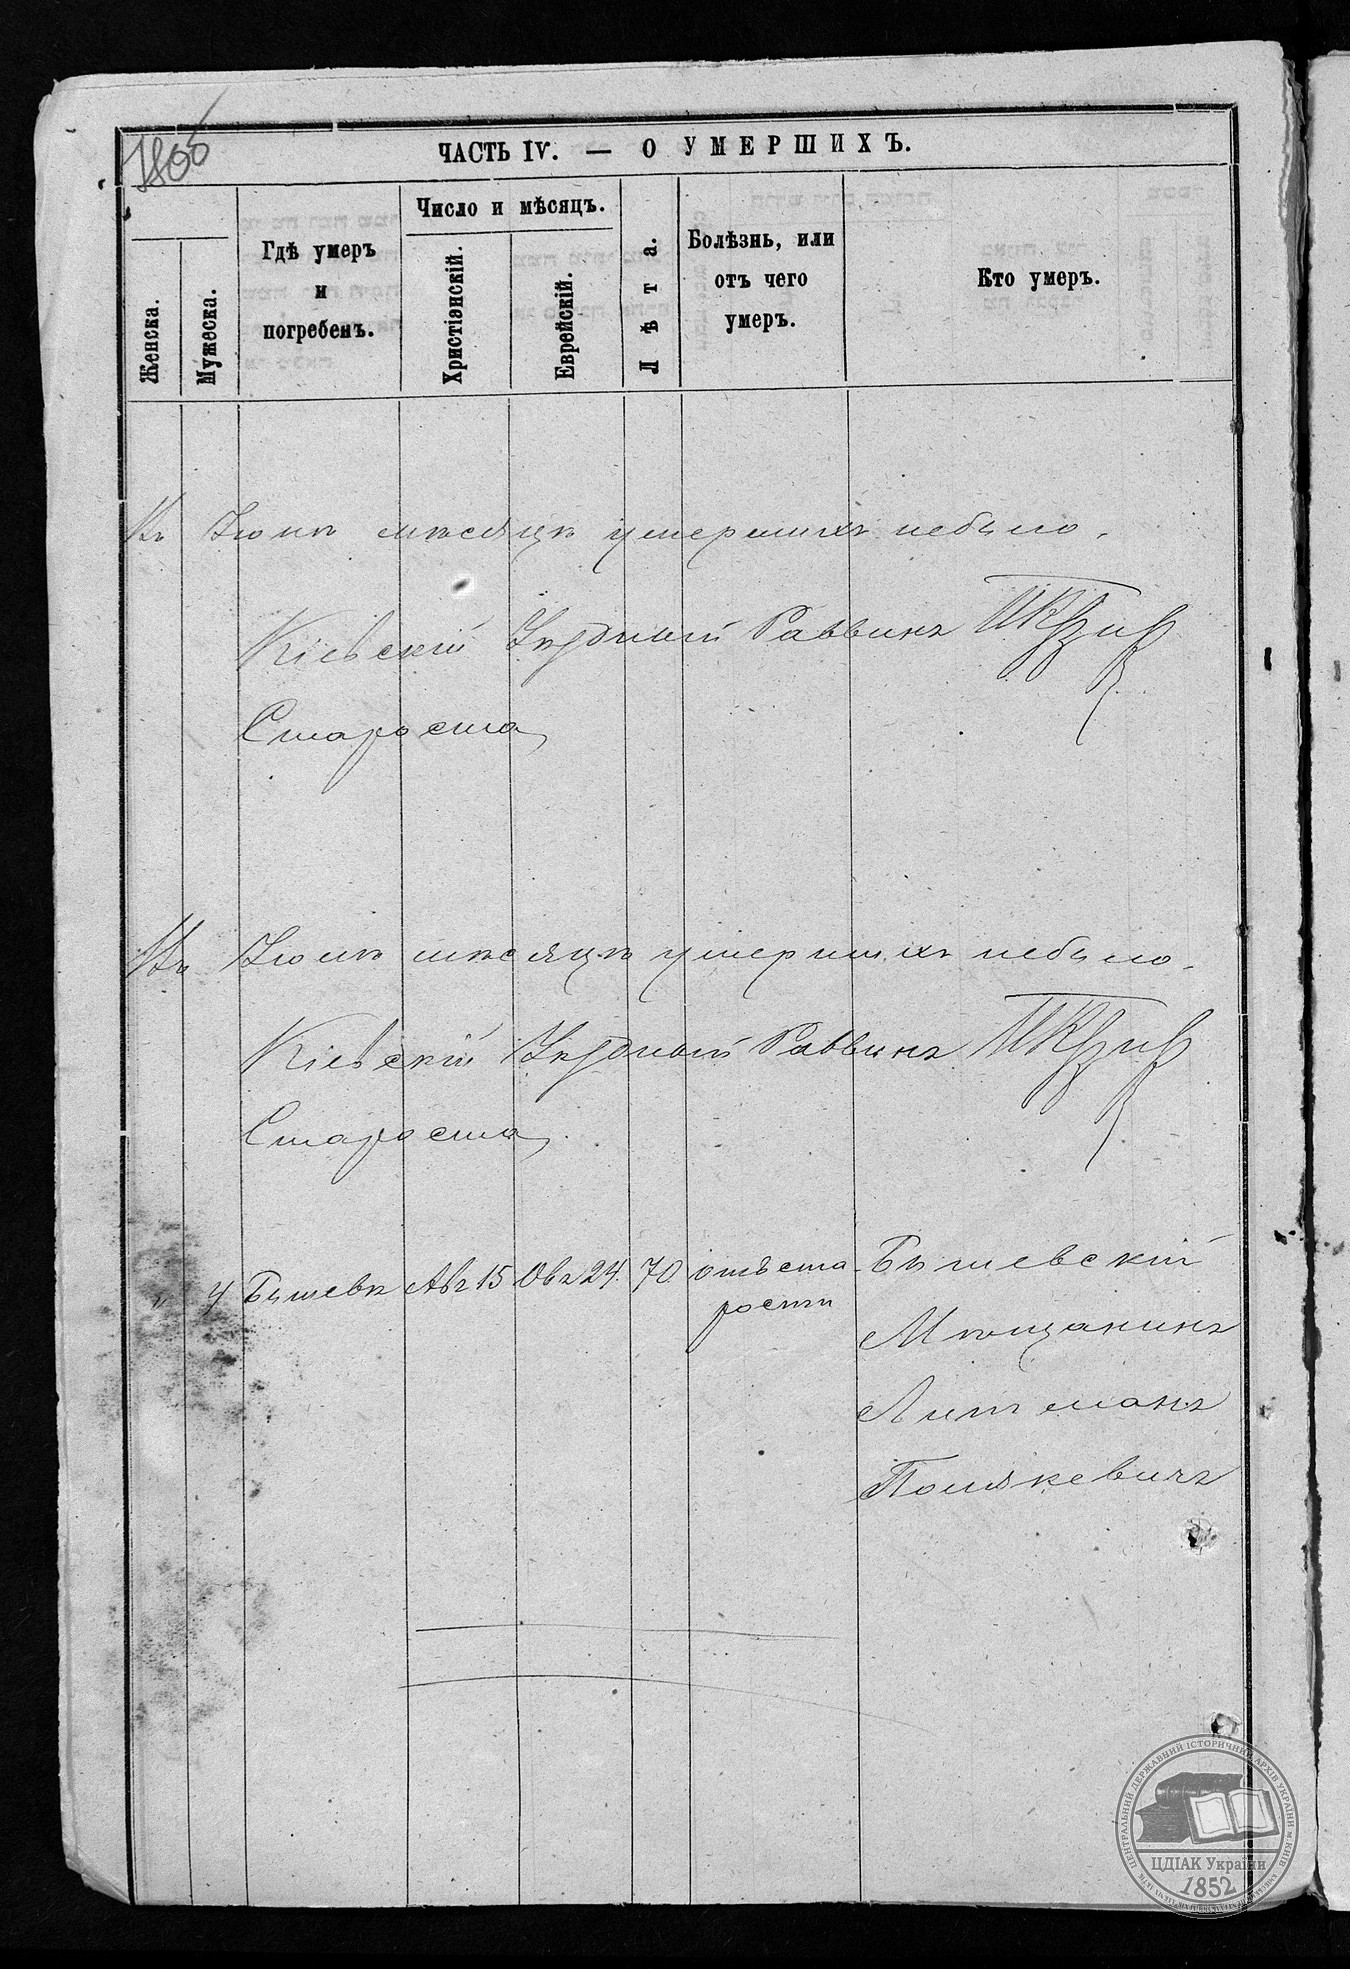 ЧАСТЬ IV. — О УМЕРШИХЪ.
Женска.
Мужеска.
Гдѣ умеръ
и
погребенъ.
Число и мѣсяцъ.
Христіэнскій.
Еврейскій.
Лѣта.
Болѣзнь, или
отъ чего
умеръ.
Кто умеръ.
Въ мѣсяцѣ умершихъ небыло.
Кіевскій Уѣздный Раввинъ
Староста
Въ мѣсяцѣ умершихъ небыло.
Кіевскій Уѣздный Раввинъ
Староста
4 Бышевѣ Авг 15 Овъ 24. 70 отъ ста Бышевскій
рости
Мѣщанинъ
Литманъ
Полякевичъ
ЦЕНТРАЛЬНИЙ ДЕРЖАВНИЙ ІСТОРИЧНИЙ АРХІВ УКРАЇНИ м. КИЇВ
ЦДІАК України
1852